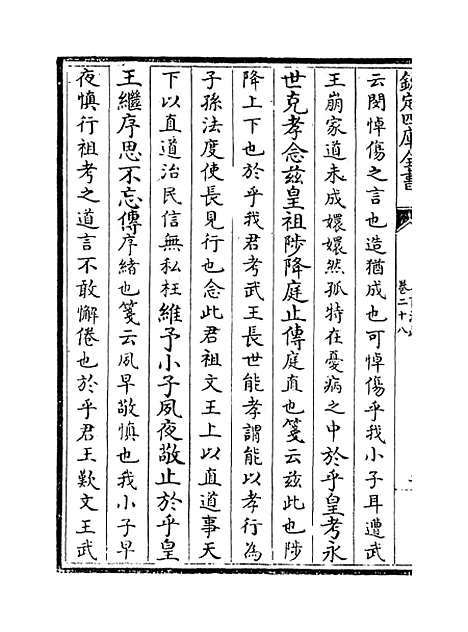 欽定四庫全書
卷二十八
云閔悼傷之言也造猶成也可悼傷乎我小子耳遭武
王崩家道未成嬛嬛然孤特在憂病之中於乎皇考永
世克孝念兹皇祖陟降庭止傳庭直也箋云兹此也陟
降上下也於乎我君考武王長世能孝謂能以孝行為
子孫法度使長見行也念此君祖文王上以直道事天
下以直道治民信無私枉維予小子夙夜敬止於乎皇
王繼序思不忘傳序緒也箋云夙早敬慎也我小子早
夜慎行祖考之道言不敢懈倦也於乎君王歎文王武